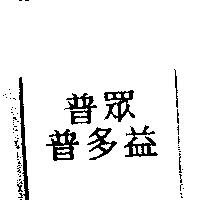 普眾
普多益